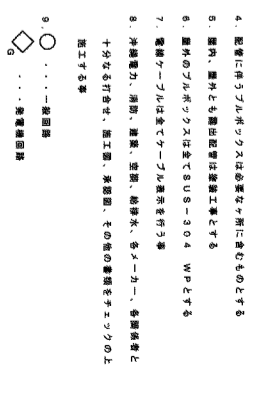 4. 配管に伴うプルボックスは必要なヶ所に含むものとする
5. 屋内、屋外とも露出配管は塗装工事とする
6. 屋外のプルボックスは全てSUS-304 WPとする
7. 電線ケーブルは全てケーブル表示を行う事
8. 沖縄電力、消防、建築、空調、給排水、各メーカー、各関係者と
十分なる打合せ、施工図、承認図、その他の書類をチェックの上
施工する事
9. ○ ・・・一般回路
◇G ・・・発電機回路